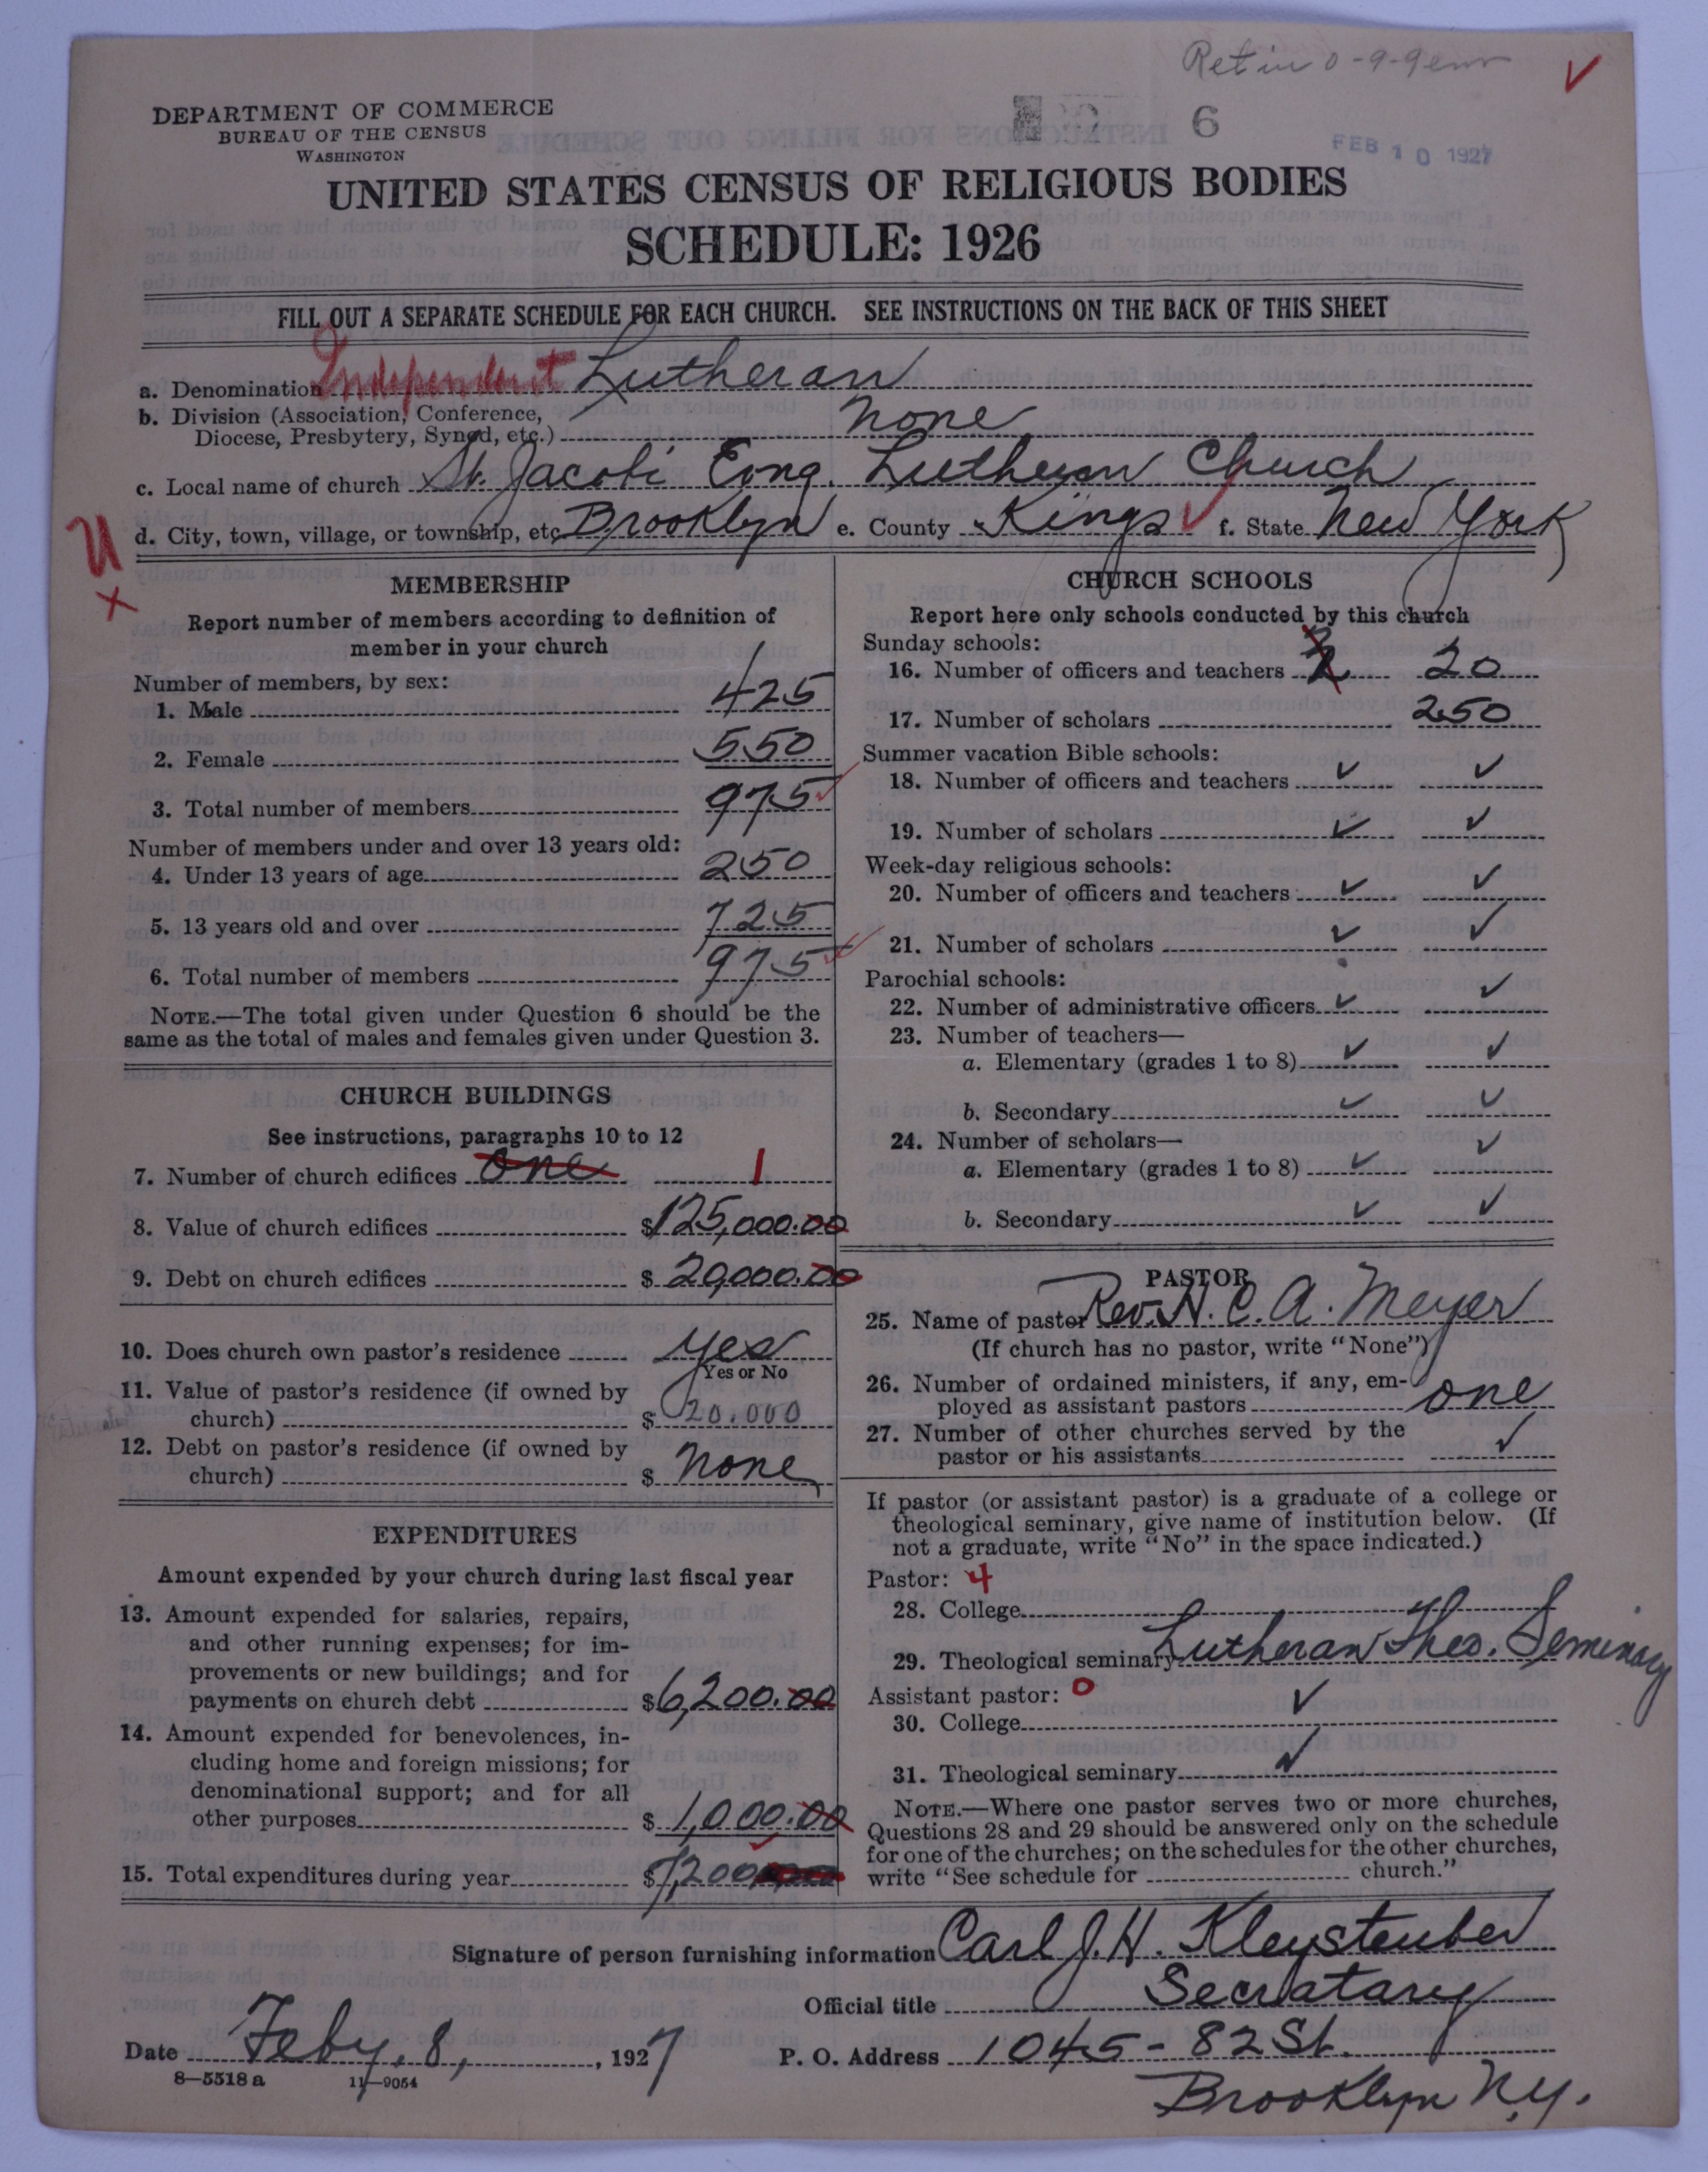 DEPARTMENT OF COMMERCE
BUREAU OF THE CENSUS
WASHINGTON
6
FEB 10 1927
UNITED STATES CENSUS OF RELIGIOUS BODIES
SCHEDULE: 1926
FILL OUT A SEPARATE SCHEDULE FOR EACH CHURCH. SEE INSTRUCTIONS ON THE BACK OF THIS SHEET
a. Denomination Independent Lutheran
b. Division (Association, Conference, Diocese, Presbytery, Synod, etc.) None
c. Local name of church St. Jacobi Evng. Lutheran Church
d. City, town, village, or township, etc. Brooklyn e. County Kings f. State New York
U
x
MEMBERSHIP
Report number of members according to definition of
member in your church
Number of members, by sex:
1. Male 425
2. Female 550
3. Total number of members 975
Number of members under and over 13 years old:
4. Under 13 years of age 250
5. 13 years old and over 725
6. Total number of members 975
NOTE.—The total given under Question 6 should be the
same as the total of males and females given under Question 3.
CHURCH BUILDINGS
See instructions, paragraphs 10 to 12
7. Number of church edifices one 1
8. Value of church edifices $125,000.00
9. Debt on church edifices $20,000.00
10. Does church own pastor's residence yes
Yes or No
11. Value of pastor's residence (if owned by
church) $20.000
12. Debt on pastor's residence (if owned by
church) $ None
EXPENDITURES
Amount expended by your church during last fiscal year
13. Amount expended for salaries, repairs,
and other running expenses; for im-
provements or new buildings; and for
payments on church debt $6,200.00
14. Amount expended for benevolences, in-
cluding home and foreign missions; for
denominational support; and for all
other purposes $1,000.00
15. Total expenditures during year $7,200
CHURCH SCHOOLS
Report here only schools conducted by this church
Sunday schools:
16. Number of officers and teachers 20
17. Number of scholars 250
Summer vacation Bible schools:
18. Number of officers and teachers ✓ ✓
19. Number of scholars ✓ ✓
Week-day religious schools:
20. Number of officers and teachers ✓ ✓
21. Number of scholars ✓ ✓
Parochial schools:
22. Number of administrative officers ✓ ✓
23. Number of teachers—
a. Elementary (grades 1 to 8) ✓ ✓
b. Secondary ✓ ✓
24. Number of scholars—
a. Elementary (grades 1 to 8) ✓ ✓
b. Secondary ✓ ✓
PASTOR
25. Name of pastor Rev. H. C. A. Meyer
(If church has no pastor, write "None")
26. Number of ordained ministers, if any, em-
ployed as assistant pastors one
27. Number of other churches served by the
pastor or his assistants ✓
If pastor (or assistant pastor) is a graduate of a college or
theological seminary, give name of institution below. (If
not a graduate, write "No" in the space indicated.)
Pastor: 4
28. College
29. Theological seminary Lutheran Theo. Seminary
Assistant pastor: 0
30. College ✓
31. Theological seminary ✓
NOTE.—Where one pastor serves two or more churches,
Questions 28 and 29 should be answered only on the schedule
for one of the churches; on the schedules for the other churches,
write "See schedule for church."
Signature of person furnishing information Carl J. H. Kleysteuber
Official title Secratary
Date Feby. 8, 1927 P. O. Address 1045 - 82 St.
8—5518 a 11—9054
Brooklyn N.Y.